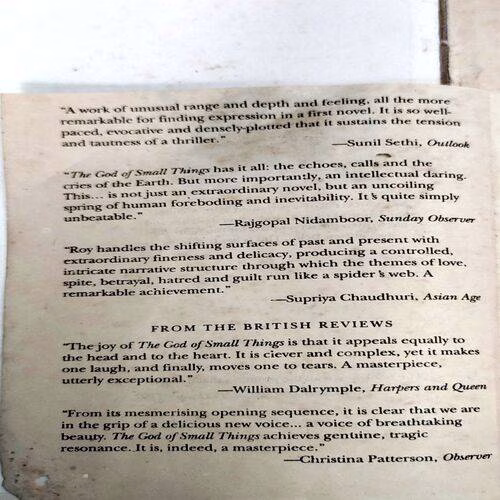 "A work of unusual range and depth and feeling, all the more
remarkable for finding expression in a first novel. It is so well-
paced, evocative and densely-plotted that it sustains the tension
and tautness of a thriller."
—Sunil Sethi, Outlook
"The God of Small Things has it all: the echoes, calls and the
cries of the Earth. But more importantly, an intellectual daring.
This... is not just an extraordinary novel, but an uncoiling
spring of human foreboding and inevitability. It's quite simply
unbeatable."
—Rajgopal Nidamboor, Sunday Observer
"Roy handles the shifting surfaces of past and present with
extraordinary fineness and delicacy, producing a controlled,
intricate narrative structure through which the themes of love,
spite, betrayal, hatred and guilt run like a spider's web. A
remarkable achievement."
—Supriya Chaudhuri, Asian Age
FROM THE BRITISH REVIEWS
"The joy of The God of Small Things is that it appeals equally to
the head and to the heart. It is clever and complex, yet it makes
one laugh, and finally, moves one to tears. A masterpiece,
utterly exceptional."
—William Dalrymple, Harpers and Queen
"From its mesmerising opening sequence, it is clear that we are
in the grip of a delicious new voice... a voice of breathtaking
beauty. The God of Small Things achieves genuine, tragic
resonance. It is, indeed, a masterpiece."
—Christina Patterson, Observer